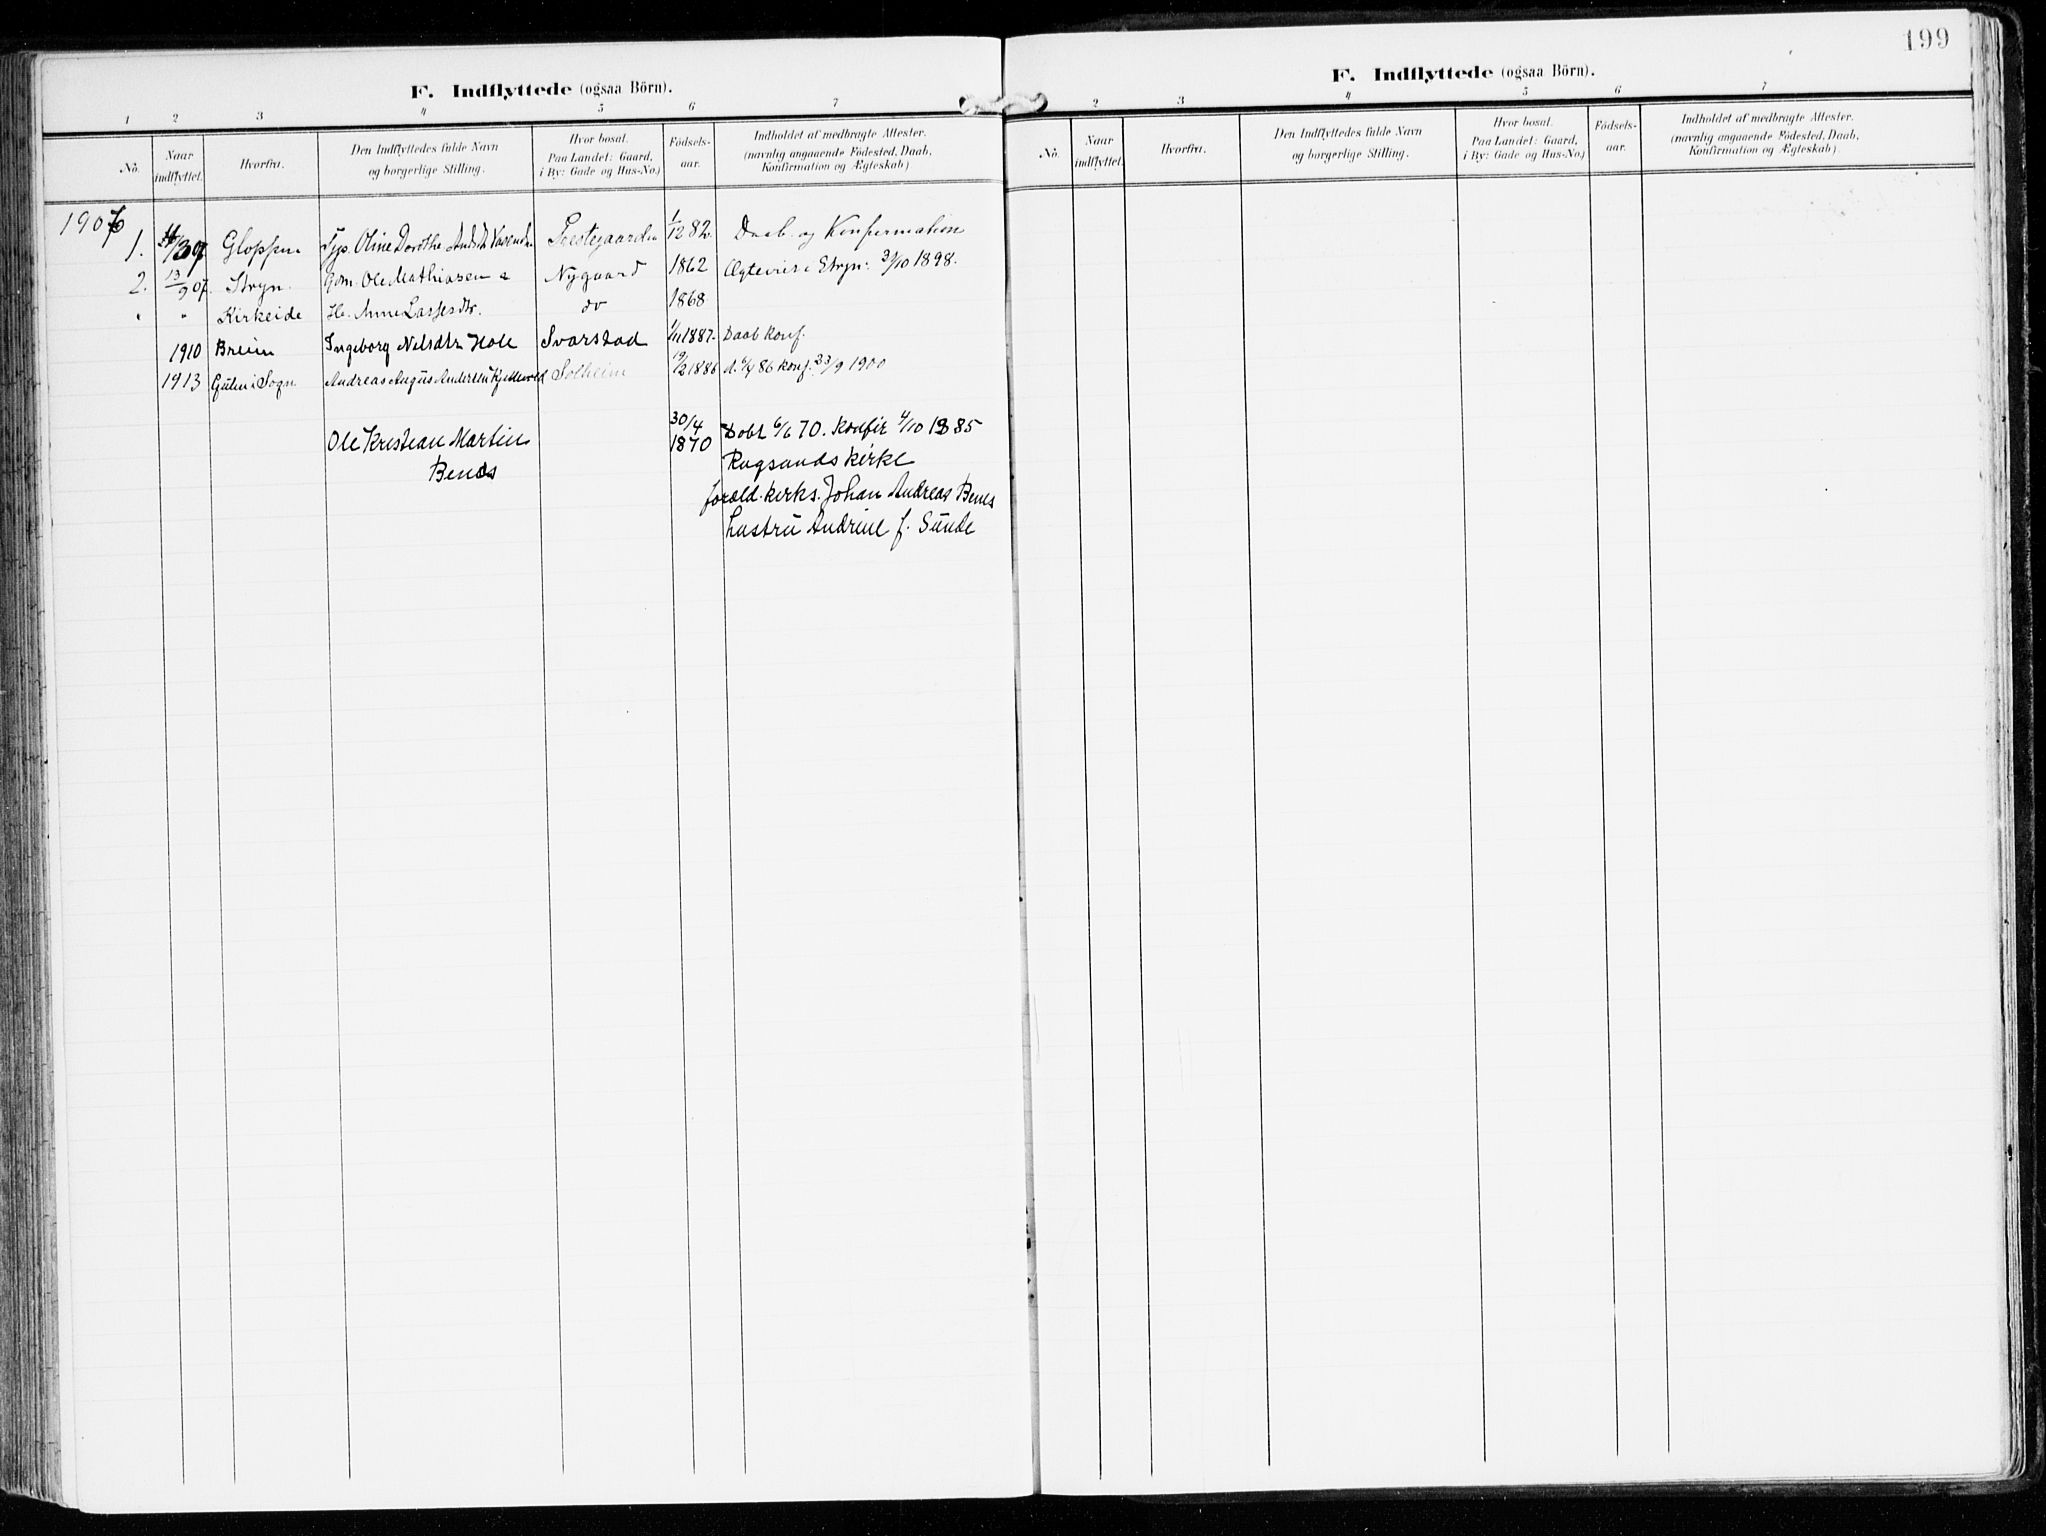 F. Indflyttede (ogsaa Börn).
1 2 3 4 5 6 7
No. Naar indflyttet. Hvorfra. Den Indflyttedes fulde Navn og borgerlige Stilling. Hvor bosat. Paa Landet: Gaard, i By: Gade og Hus-No.) Födsels-aar. Indholdet af medbragte Attester. (navnlig angaaende Födested, Daab, Konfirmation og Ægteskab)
1907
1. Gloppen Oline Dorothe Prestegaarden 1/12 82. Daab og Konfirmation
2. 13/9 07. Stryn. Gm. Ole Mathiasen & Nygaard 1862 Ægtevies i Stryn 1898.
" " Kirkeide H. Anne Lassesdtr. do 1868
1910 Breim Ingeborg Nilsdtr Hole Svarstad 1/11 1887. Daab konf.
1913 Gulen i Sogn Andreas Solheim 19/2 1886 d. 6/4 86 konf. 23/9 1900
Ole Kristian Martin 30/4 1870 Döbt 6/6 70. Konfir 4/10 1885
Benes Rugsunds Kirke
foræld. kirks. Johan Andreas Benes
hustru Andrine f. Sunde
199
F. Indflyttede (ogsaa Börn).
2 3 4 5 6 7
No. Naar indflyttet. Hvorfra. Den Indflyttedes fulde Navn og borgerlige Stilling. Hvor bosat. Paa Landet: Gaard, i By: Gade og Hus-No.) Födsels-aar. Indholdet af medbragte Attester. (navnlig angaaende Födested, Daab, Konfirmation og Ægteskab)